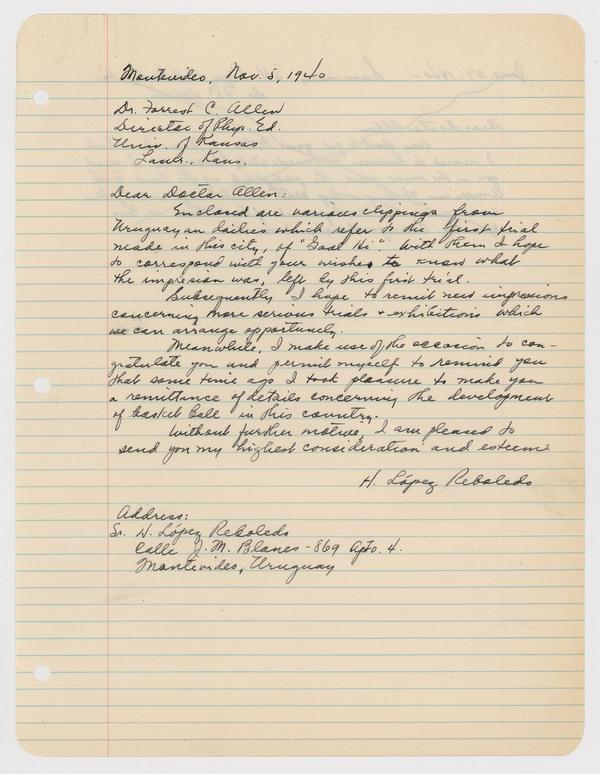 Montevideo, Nov. 5, 1940
Dr. Forrest C. Allen
Director of Phys. Ed.
Univ. of Kansas
Lawr., Kans.
Dear Doctor Allen:
Enclosed are various clippings from
Uruguayan dailies which refer to the first trial
made in this city, of "Goal Hi". With them I hope
to correspond with your wishes to know what
the impresion was, left by this first trial.
Subsequently I hope to remit new impressions
concerning more serious trials + exhibitions which
we can arrange opportunely.
Meanwhile, I make use of the occasion to con-
gratulate you and permit myself to remind you
that some time ago I took pleasure to make you
a remittance of details concerning the development
of basket ball in this country.
Without further motive, I am pleased to
send you my highest consideration and esteem.
H. López Reboledo
Address:
Sr. H. López Reboledo
Calle J. M. Blanes - 869 Apto. 4.
Montivideo, Uruguay